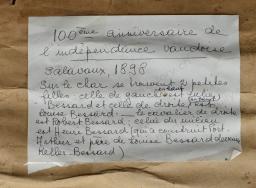 100ème anniversaire de
l'indépendance vaudoise
Salavaux, 1898
Sur le char se trouvent 2 petites
filles. celle de gauche est Julie
Bessard et celle de droite est
Louise Bessard. le cavalier de droite
est Robert Bessard. celui du milieu
est Henri Bessard (qui a construit
et père de Louise Bessard devenue
Bessard)